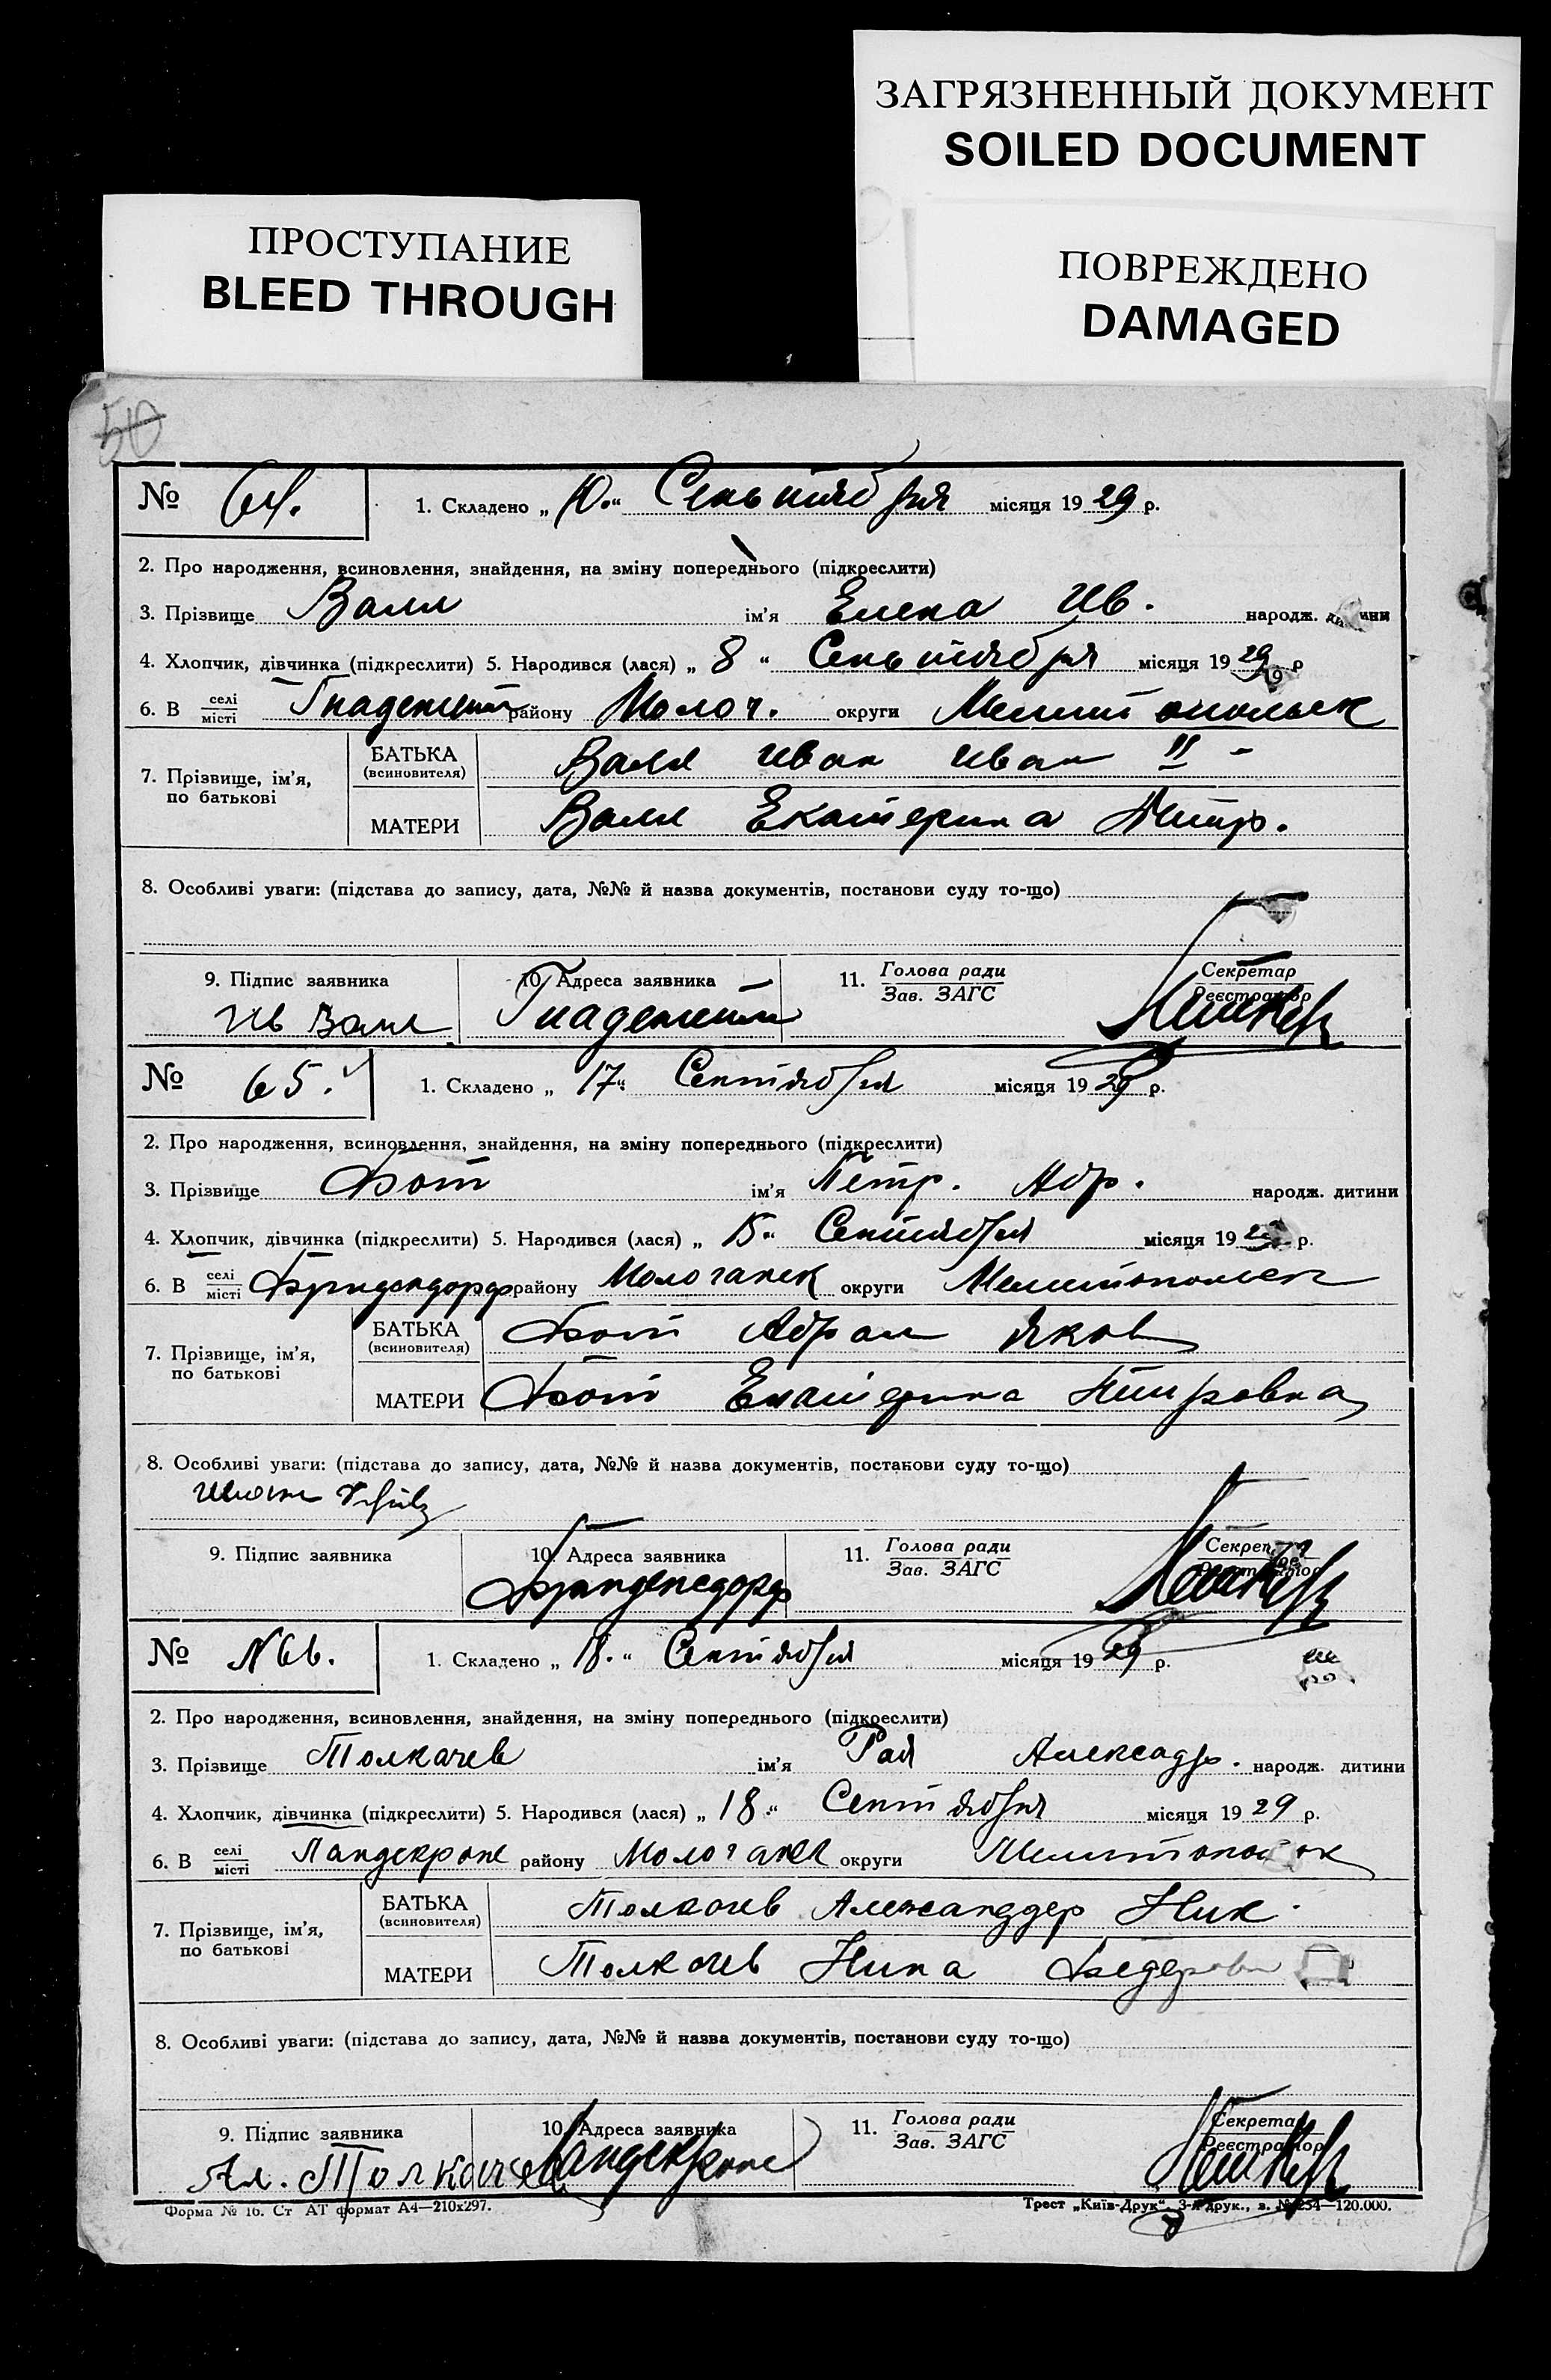 ЗАГРЯЗНЕННЫЙ ДОКУМЕНТ
SOILED DOCUMENT
ПРОСТУПАНИЕ
BLEED THROUGH
ПОВРЕЖДЕНО
DAMAGED
50
№ 64. 1. Складено „ 10. “ Сеньтября місяця 19 29 р.
2. Про народження, всиновлення, знайдення, на зміну попереднього (підкреслити)
3. Прізвище Валл ім’я Елена Ив. народж. дитини
4. Хлопчик, дівчинка (підкреслити) 5. Народився (лася) „ 8 “ Сеньтября місяця 19 29 р
6. В селі/місті Гнаденгейм району Молоч. округи Мелитопольск
7. Прізвище, ім’я, по батькові
БАТЬКА (всиновителя) Валл Иван Иван II -
МАТЕРИ Валл Екатерина Петр.
8. Особливі уваги: (підстава до запису, дата, №№ й назва документів, постанови суду то-що)
9. Підпис заявника 10. Адреса заявника 11. Голова ради / Зав. ЗАГС Секретар / Реєстратор
Ив Валл Гнаденгейм
№ 65. 1. Складено „ 17 “ Сентября місяця 19 29 р.
2. Про народження, всиновлення, знайдення, на зміну попереднього (підкреслити)
3. Прізвище ім’я Петр. Абр. народж. дитини
4. Хлопчик, дівчинка (підкреслити) 5. Народився (лася) „ 15 “ Сентября місяця 19 29 р.
6. В селі/місті району Молочанск округи Мелитопольск
7. Прізвище, ім’я, по батькові
БАТЬКА (всиновителя) Абрам Яков
МАТЕРИ Екатерина Петровна
8. Особливі уваги: (підстава до запису, дата, №№ й назва документів, постанови суду то-що)
9. Підпис заявника 10. Адреса заявника 11. Голова ради / Зав. ЗАГС Секретар / Реєстратор
№ N 66. 1. Складено „ 18. “ Сентября місяця 19 29 р.
2. Про народження, всиновлення, знайдення, на зміну попереднього (підкреслити)
3. Прізвище Толкачев ім’я Рая Александр. народж. дитини
4. Хлопчик, дівчинка (підкреслити) 5. Народився (лася) „ 18 “ Сентября місяця 19 29 р.
6. В селі/місті Ландскроне району Молочанск округи
7. Прізвище, ім’я, по батькові
БАТЬКА (всиновителя) Толкачев Александер Ник.
МАТЕРИ Толкачев Нина
8. Особливі уваги: (підстава до запису, дата, №№ й назва документів, постанови суду то-що)
9. Підпис заявника 10. Адреса заявника 11. Голова ради / Зав. ЗАГС Секретар / Реєстратор
Ал. Толкачев Ландскроне
Форма № 16. Ст АТ формат А4—210х297. Трест „Київ-Друк“, 3-я друк., з. № 254—120.000.